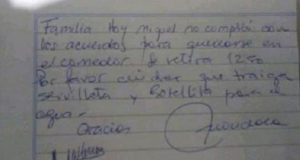 Familia Hoy miguel no cumplió con
los acuerdos para quedarse en
el comedor. Se retira 12:50
Por favor cuidar que traiga
servilleta y Botellita para el
agua.
Gracias